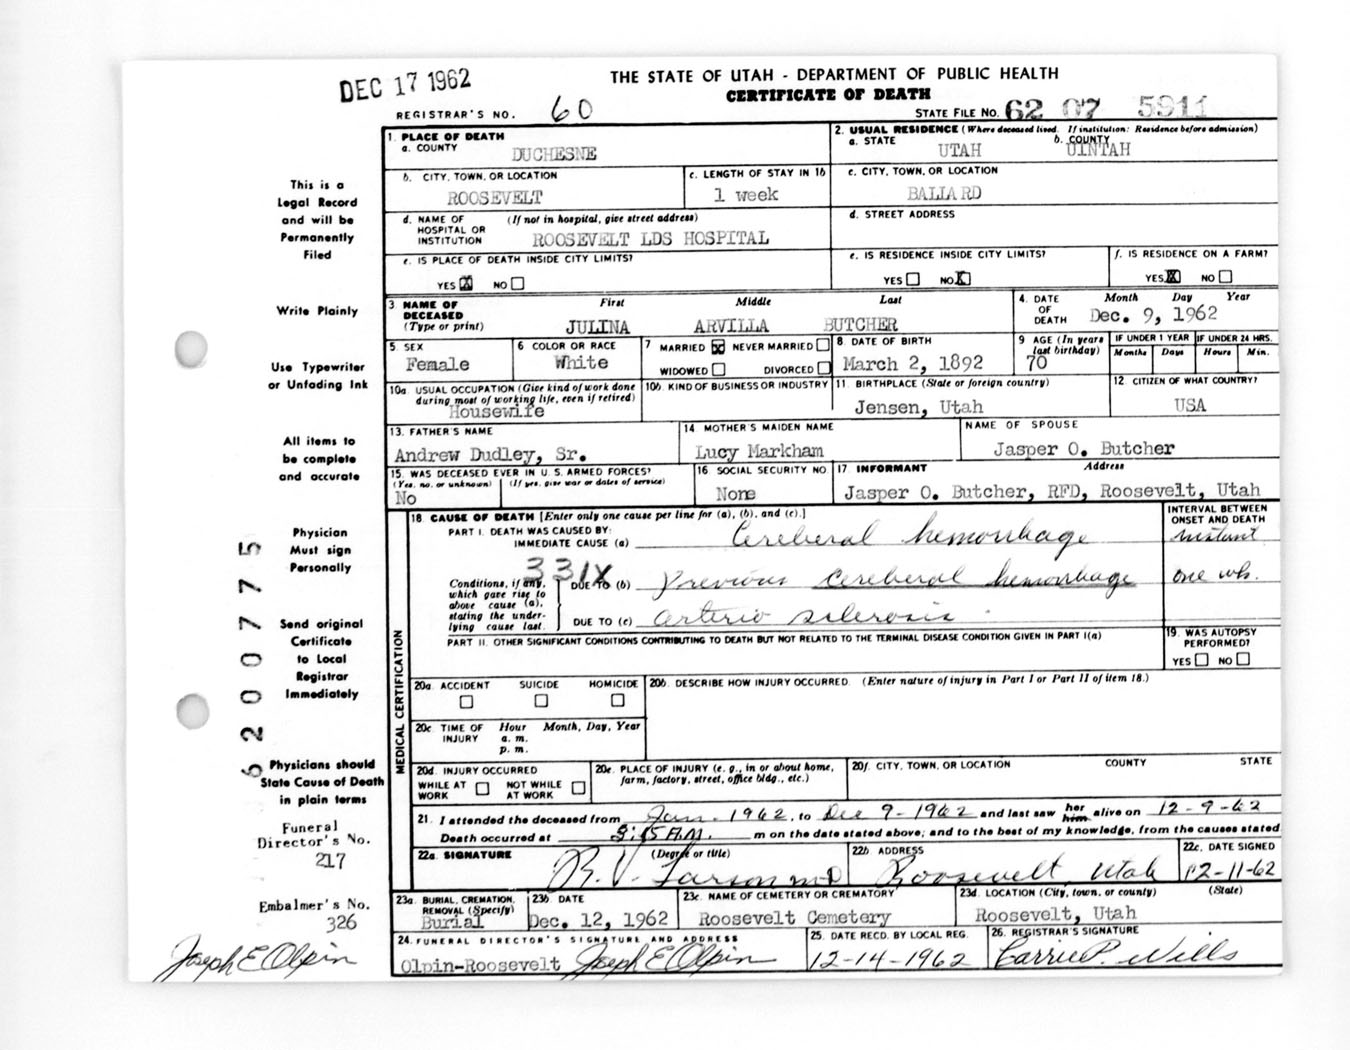 DEC 17 1962
THE STATE OF UTAH - DEPARTMENT OF PUBLIC HEALTH
CERTIFICATE OF DEATH
REGISTRAR'S NO. 60
STATE FILE NO. 62 07 5911
1. PLACE OF DEATH
a. COUNTY DUCHESNE
2. USUAL RESIDENCE (Where deceased lived. If institution: Residence before admission)
a. STATE UTAH b. COUNTY UINTAH
b. CITY, TOWN, OR LOCATION ROOSEVELT
c. LENGTH OF STAY IN 1b 1 week
c. CITY, TOWN, OR LOCATION BALLARD
d. NAME OF HOSPITAL OR INSTITUTION (If not in hospital, give street address) ROOSEVELT LDS HOSPITAL
d. STREET ADDRESS
e. IS PLACE OF DEATH INSIDE CITY LIMITS?
YES X NO
e. IS RESIDENCE INSIDE CITY LIMITS?
YES NO X
f. IS RESIDENCE ON A FARM?
YES X NO
3 NAME OF DECEASED (Type or print) First Middle Last
JULINA ARVILLA BUTCHER
4. DATE OF DEATH Month Day Year
Dec. 9, 1962
5. SEX Female
6 COLOR OR RACE White
7 MARRIED X NEVER MARRIED
WIDOWED DIVORCED
8. DATE OF BIRTH March 2, 1892
9 AGE (In years last birthday) 70
IF UNDER 1 YEAR Months Days
IF UNDER 24 HRS. Hours Min.
10a. USUAL OCCUPATION (Give kind of work done during most of working life, even if retired) Housewife
10b. KIND OF BUSINESS OR INDUSTRY
11. BIRTHPLACE (State or foreign country) Jensen, Utah
12 CITIZEN OF WHAT COUNTRY? USA
13. FATHER'S NAME Andrew Dudley, Sr.
14 MOTHER'S MAIDEN NAME Lucy Markham
NAME OF SPOUSE Jasper O. Butcher
15. WAS DECEASED EVER IN U.S. ARMED FORCES?
(Yes, no, or unknown) (If yes, give war or dates of service)
No
16 SOCIAL SECURITY NO. None
17 INFORMANT Address
Jasper O. Butcher, RFD, Roosevelt, Utah
MEDICAL CERTIFICATION
18 CAUSE OF DEATH [Enter only one cause per line for (a), (b), and (c).]
INTERVAL BETWEEN ONSET AND DEATH
PART I. DEATH WAS CAUSED BY:
IMMEDIATE CAUSE (a) Cereberal hemorrhage instant
331X
Conditions, if any, which gave rise to above cause (a), stating the underlying cause last.
DUE TO (b) previous cereberal hemorrhage one wk.
DUE TO (c) arterio sclerosis.
PART II. OTHER SIGNIFICANT CONDITIONS CONTRIBUTING TO DEATH BUT NOT RELATED TO THE TERMINAL DISEASE CONDITION GIVEN IN PART I(a)
19. WAS AUTOPSY PERFORMED?
YES NO
20a. ACCIDENT SUICIDE HOMICIDE
20b. DESCRIBE HOW INJURY OCCURRED. (Enter nature of injury in Part I or Part II of item 18.)
20c TIME OF INJURY Hour Month, Day, Year
a. m.
p. m.
20d. INJURY OCCURRED
WHILE AT WORK NOT WHILE AT WORK
20e. PLACE OF INJURY (e. g., in or about home, farm, factory, street, office bldg., etc.)
20f. CITY, TOWN, OR LOCATION COUNTY STATE
21. I attended the deceased from Jan. 1962, to Dec 9-1962 and last saw her him alive on 12-9-62
Death occurred at m on the date stated above; and to the best of my knowledge, from the causes stated
22a. SIGNATURE (Degree or title) R. V. Larson MD
22b. ADDRESS Roosevelt, Utah
22c. DATE SIGNED 12-11-62
23a. BURIAL, CREMATION, REMOVAL (Specify) Burial
23b. DATE Dec. 12, 1962
23c. NAME OF CEMETERY OR CREMATORY Roosevelt Cemetery
23d. LOCATION (City, town, or county) (State)
Roosevelt, Utah
24. FUNERAL DIRECTOR'S SIGNATURE AND ADDRESS
Olpin-Roosevelt Joseph E Olpin
25. DATE RECD. BY LOCAL REG. 12-14-1962
26. REGISTRAR'S SIGNATURE Carrie P. Wills
This is a
Legal Record
and will be
Permanently
Filed
Write Plainly
Use Typewriter
or Unfading Ink
All items to
be complete
and accurate
Physician
Must sign
Personally
Send original
Certificate
to Local
Registrar
Immediately
Physicians should
State Cause of Death
in plain terms
Funeral
Director's No.
217
Embalmer's No.
326
Joseph E Olpin
6200775